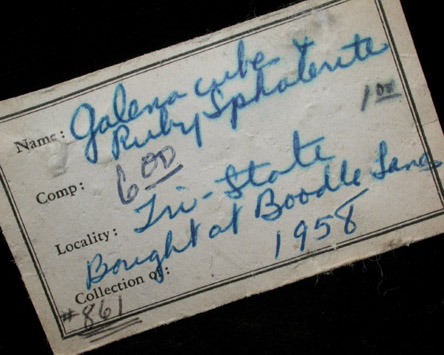 Name: Galena cube
Ruby Sphalerite
1 00
Comp: 6 00
Locality: Tri-State
Bought at Boodle Lane
1958
Collection of:
#861